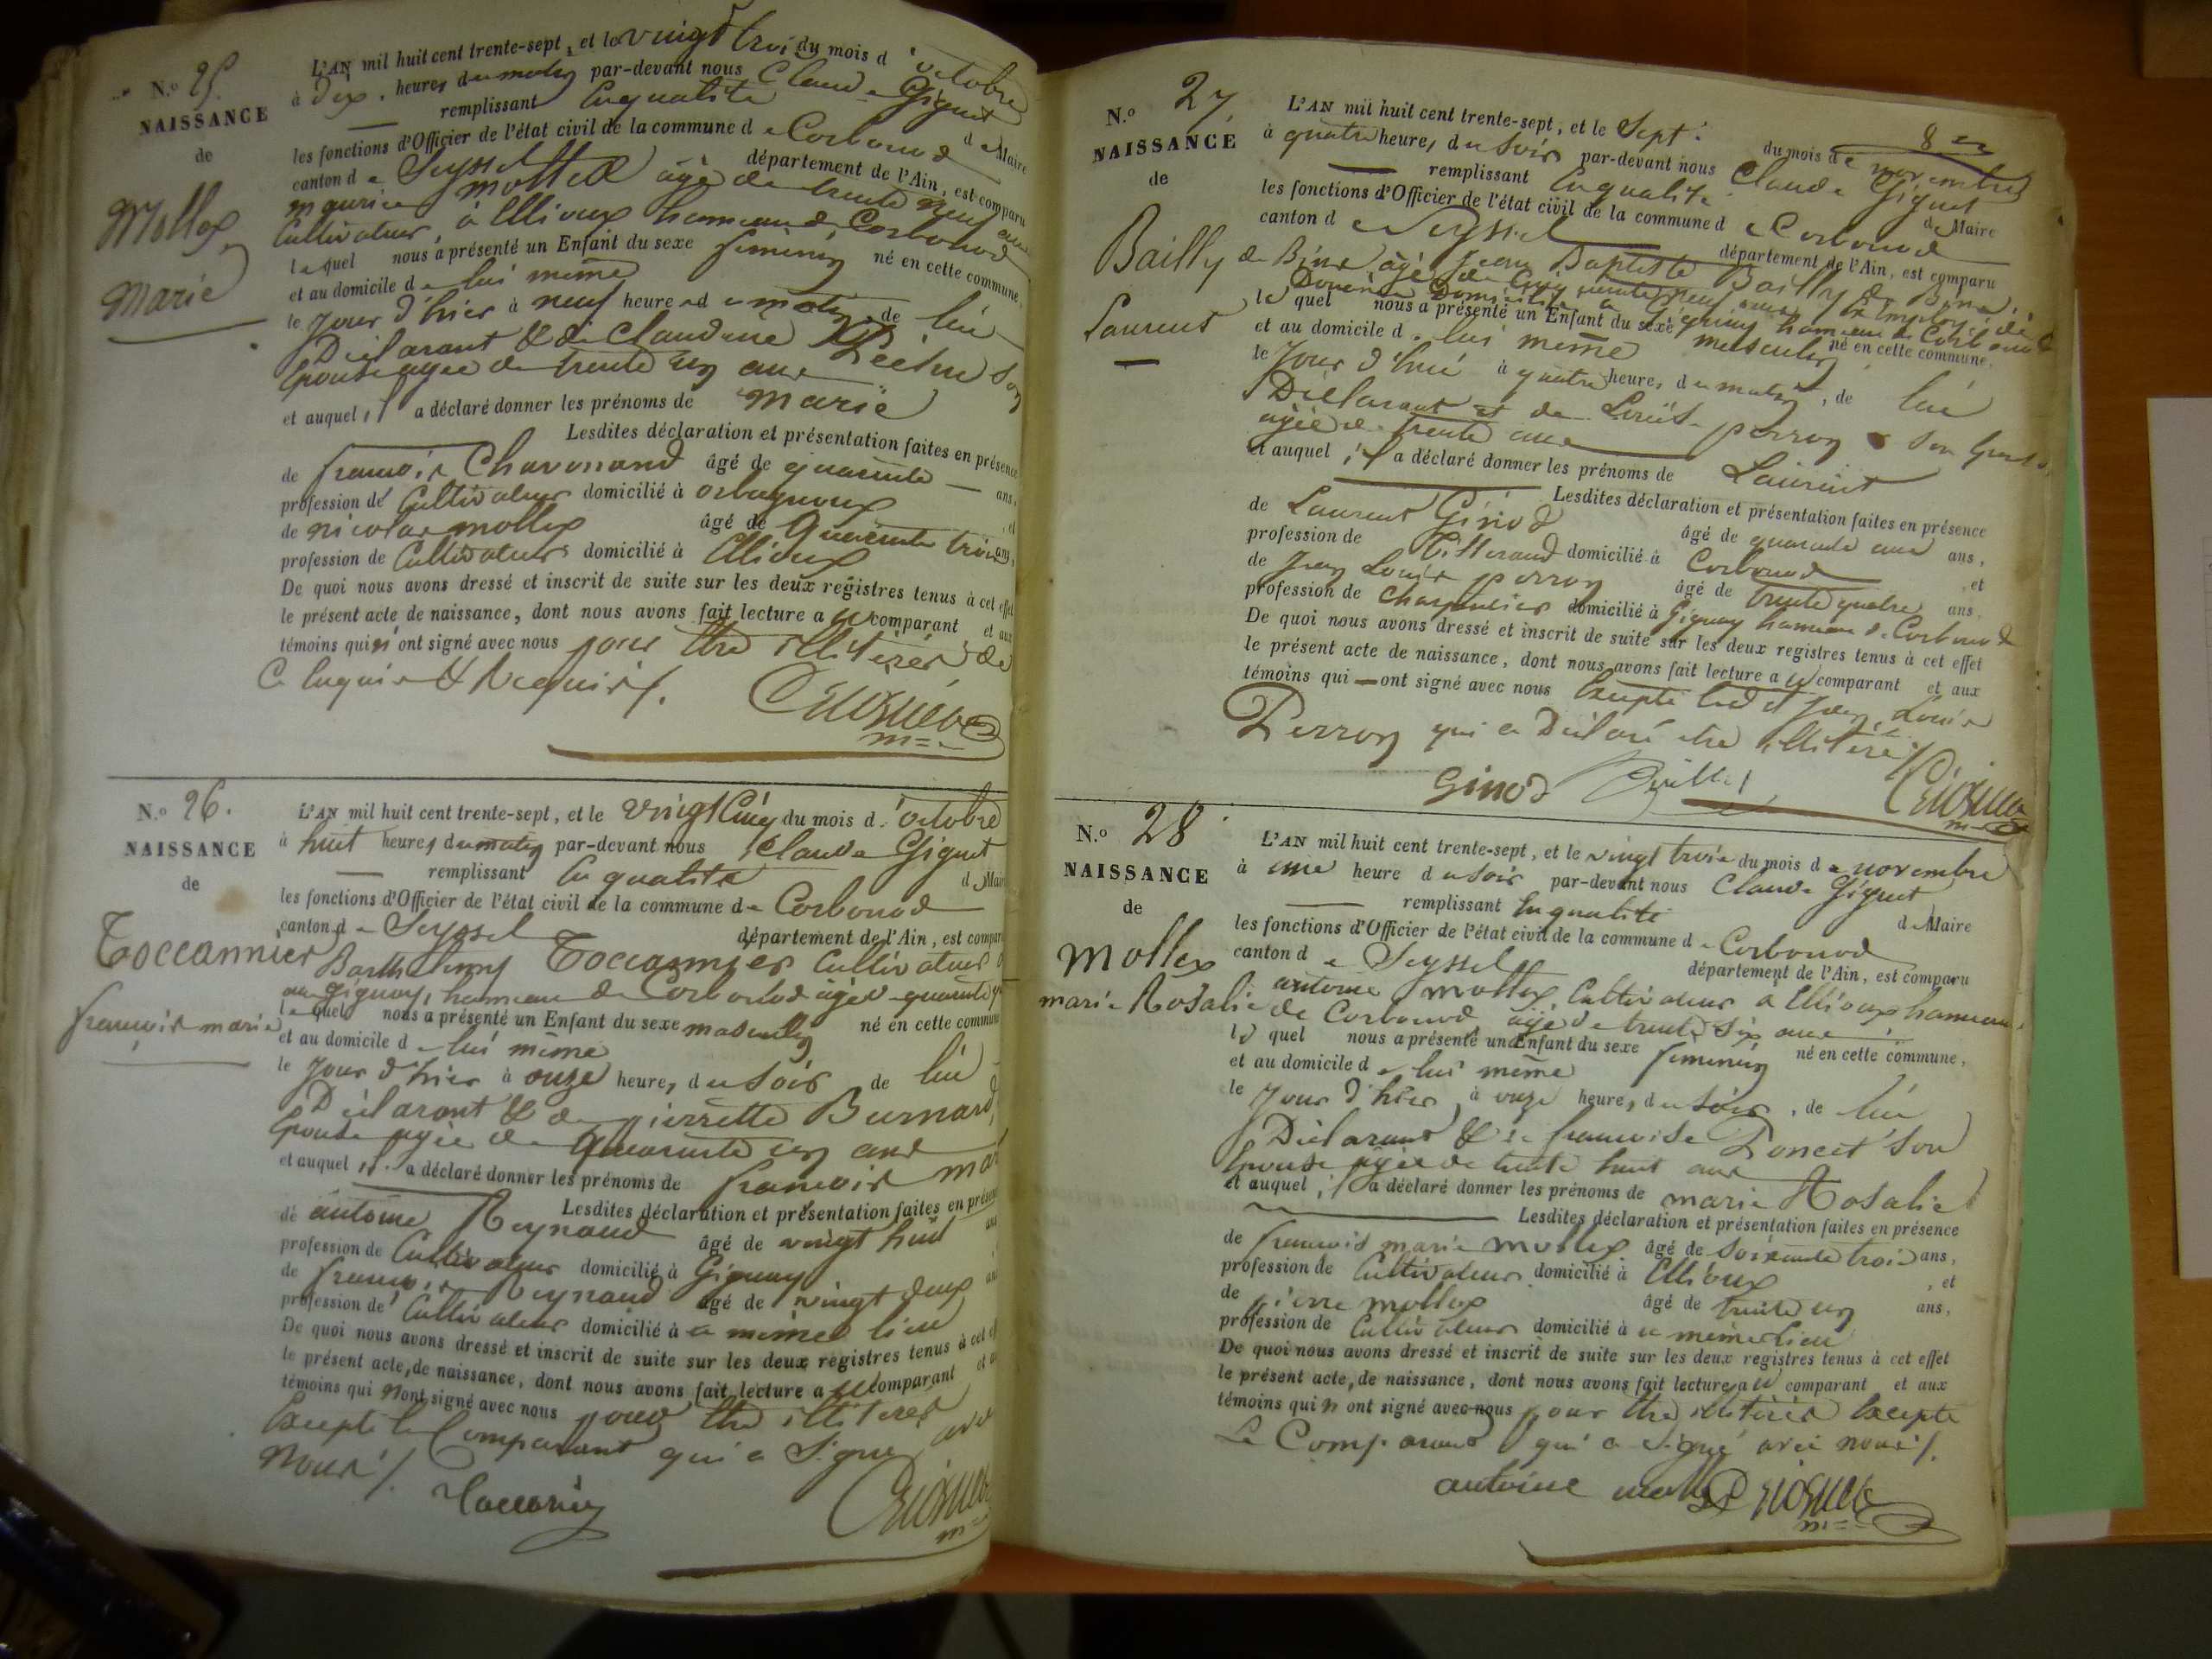 N.o 25.
NAISSANCE
de
Mollex
Marie
L'AN mil huit cent trente-sept, et le vingt trois du mois d'octobre
à dix heures du matin par-devant nous Claude Giguet
remplissant En qualité de Maire
les fonctions d'Officier de l'état civil de la commune de Corbonod
canton de Seyssel département de l'Ain, est comparu
maurice mollex âgé de trente neuf ans
Cultivateur, à Ellioux hameau de Corbonod
lequel nous a présenté un Enfant du sexe feminin né en cette commune,
et au domicile de lui même
le Jour d'hier à neuf heures du matin de lui
Déclarant & de Claudine son
Epouse agée de trente un ans
et auquel il a déclaré donner les prénoms de Marie
Lesdites déclaration et présentation faites en présence
de françois Chavonand âgé de quarante ans,
profession de Cultivateur domicilié à orbagnoux et
de nicolas mollex âgé de Quarante trois ans,
profession de Cultivateur domicilié à Ellioux
De quoi nous avons dressé et inscrit de suite sur les deux registres tenus à cet effet
le présent acte de naissance, dont nous avons fait lecture au comparant et aux
témoins qui n'ont signé avec nous pour être illitérés de
Ce Enquis & Requis /.
Giguet
m=e
N.o 26.
NAISSANCE
de
Toccannier
françois marie
L'AN mil huit cent trente-sept, et le vingt Cinq du mois d'octobre
à huit heures du matin par-devant nous Claude Giguet
remplissant En qualité de Maire
les fonctions d'Officier de l'état civil de la commune de Corbonod
canton de Seyssel département de l'Ain, est comparu
Barthelemy Toccannier Cultivateur
au gignay, hameau de Corbonod âgé de quarante
lequel nous a présenté un Enfant du sexe masculin né en cette commune
et au domicile de lui même
le Jour d'hier à onze heures du Soir de lui
Déclarant & de pierrette Burnard,
Epouse agée de Quarante un ans
et auquel il a déclaré donner les prénoms de françois mar
Lesdites déclaration et présentation faites en présen
de antoine Reynaud âgé de vingt huit ans
profession de Cultivateur domicilié à Gignay
de françois Reynaud âgé de vingt deux ans
profession de Cultivateur domicilié à ce même lieu
De quoi nous avons dressé et inscrit de suite sur les deux registres tenus à cet ef
le présent acte, de naissance, dont nous avons fait lecture au comparant et a
témoins qui n'ont signé avec nous pour être illitérés
Excepté le Comparant qui a Signé avec
nous /.
Giguet
m=
N.o 27
NAISSANCE
de
Bailly de Bins
Laurent
8 me
L'AN mil huit cent trente-sept, et le Sept du mois de novembre
à quatre heures du Soir par-devant nous Claude Giguet
remplissant En qualité de Maire
les fonctions d'Officier de l'état civil de la commune de Corbonod
canton de Seyssel département de l'Ain, est comparu
Jean Baptiste Bailly
âgé de neuf ans Employé de
Douanes Domicilié à Gignay hameau de Corbonod
le quel nous a présenté un Enfant du sexe masculin né en cette commune,
et au domicile de lui même
le Jour d'hié à quatre heures du matin, de lui
Déclarant et de Louise perron son Epouse
agée de trente ans
et auquel il a déclaré donner les prénoms de Laurent
Lesdites déclaration et présentation faites en présence
de Laurent Ginod âgé de quarante ans,
profession de domicilié à Corbonod et
de Jean Louis perron âgé de trente quatre ans,
profession de Charpentier domicilié à Gignay hameau de Corbonod
De quoi nous avons dressé et inscrit de suite sur les deux registres tenus à cet effet
le présent acte de naissance, dont nous avons fait lecture au comparant et aux
témoins qui — ont signé avec nous Excepté led.t Jean Louis
Perron qui a Déclaré être illitéré /.
Ginod Bailly
Giguet
N.o 28
NAISSANCE
de
Mollex
marie Rosalie
L'AN mil huit cent trente-sept, et le vingt trois du mois de novembre
à une heure du soir par-devant nous Claude Giguet
remplissant En qualité de Maire
les fonctions d'Officier de l'état civil de la commune de Corbonod
canton de Seyssel département de l'Ain, est comparu
antoine mollex, Cultivateur à Ellioux hameau
de Corbonod âgé de trente Six ans
le quel nous a présenté un Enfant du sexe feminin né en cette commune,
et au domicile de lui même
le Jour d'hier, à onze heures du Soir, de lui
Déclarant & de francoise Poncet Son
Epouse agée de trente huit ans
et auquel il a déclaré donner les prénoms de marie Rosalie
Lesdites déclaration et présentation faites en présence
de francois marie mollex âgé de soixante trois ans,
profession de Cultivateur domicilié à Ellioux, et
de pierre mollex âgé de trente un ans,
profession de Cultivateur domicilié à ce même lieu
De quoi nous avons dressé et inscrit de suite sur les deux registres tenus à cet effet
le présent acte, de naissance, dont nous avons fait lecture au comparant et aux
témoins qui n'ont signé avec nous pour être illitérés Excepté
Le Comparant qui a signé avec nous /.
antoine mollex Giguet
m=e